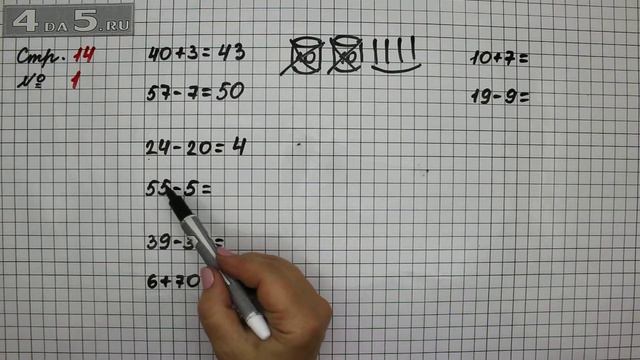 4DA5.RU
Стр. 14
№ 1
40+3=43
57-7=50
24-20=4
55-5=
39-3 =
6+70
10 10
10+7=
19-9=